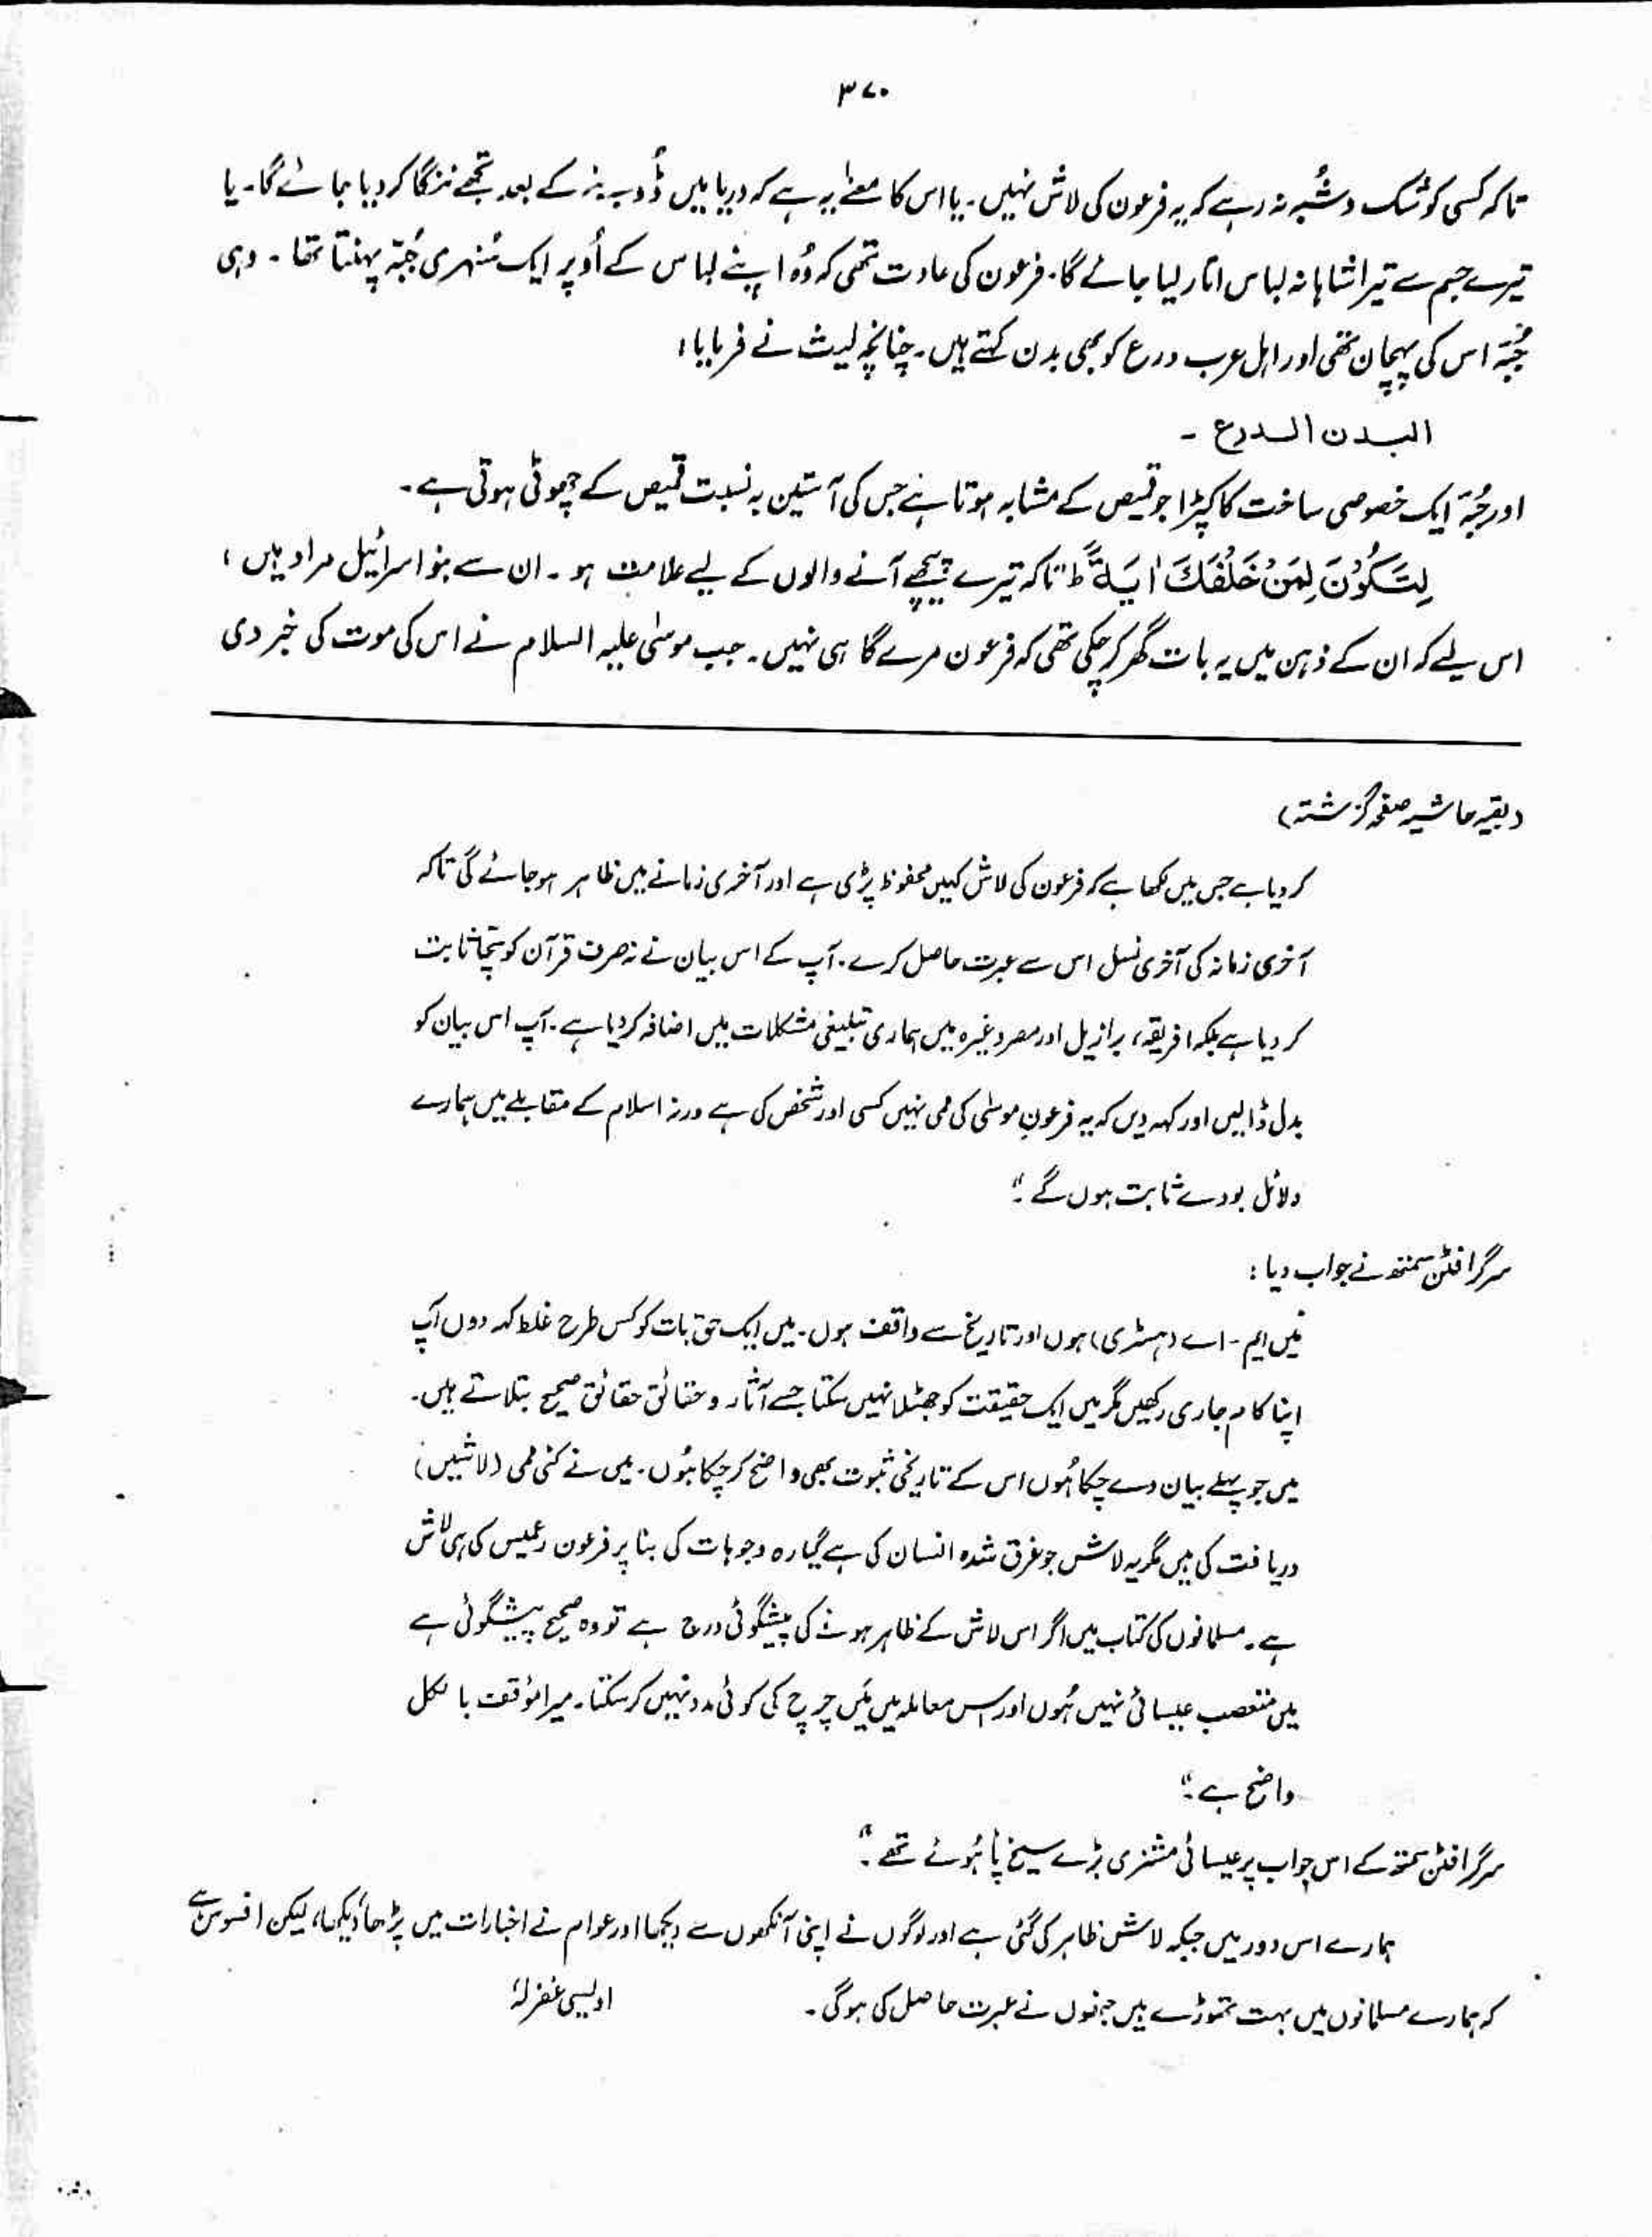 ۳۷۰
تاکہ کسی کو شک و شُبہ نہ رہے کہ یہ فرعون کی لاش نہیں۔ یا اس کا معنے یہ ہے کہ دریا میں ڈُوبنے کے بعد تجھے ننگا کر دیا جائے گا۔ یا
تیرے جسم سے تیرا شاہانہ لباس اتار لیا جائے گا۔ فرعون کی عادت تھی کہ وُہ اپنے لباس کے اُوپر ایک سُنہری جُبّہ پہنتا تھا۔ وہی
جُبّہ اس کی پہچان تھی اور اہل عرب درع کو بھی بدن کہتے ہیں۔ چنانچہ لیث نے فرمایا:
البدن الدرع۔
اور جُبّہ ایک خصوصی ساخت کا کپڑا جو قمیص کے مشابہ ہوتا ہے جس کی آستین بہ نسبت قمیص کے چھوٹی ہوتی ہے۔
لِتَکُوْنَ لِمَنْ خَلْفَكَ اٰیَةً ط "تاکہ تیرے پیچھے آنے والوں کے لیے علامت ہو۔ ان سے بنو اسرائیل مراد ہیں،
اس لیے کہ ان کے ذہن میں یہ بات گھر کر چکی تھی کہ فرعون مرے گا ہی نہیں۔ جب موسٰی علیہ السلام نے اس کی موت کی خبر دی
(بقیہ حاشیہ صفحہ گزشتہ)
کر دیا ہے جس میں لکھا ہے کہ فرعون کی لاش کہیں محفوظ پڑی ہے اور آخری زمانے میں ظاہر ہو جائے گی تاکہ
آخری زمانہ کی آخری نسل اس سے عبرت حاصل کرے۔ آپ کے اس بیان نے نہ صرف قرآن کو سچا ثابت
کر دیا ہے بلکہ افریقہ، برازیل اور مصر وغیرہ میں ہماری تبلیغی مشکلات میں اضافہ کر دیا ہے۔ آپ اس بیان کو
بدل ڈالیں اور کہہ دیں کہ یہ فرعونِ موسٰی کی ممی نہیں کسی اور شخص کی ہے ورنہ اسلام کے مقابلے میں ہمارے
دلائل بودے ثابت ہوں گے۔"
سر گرافٹن سمتھ نے جواب دیا:
مَیں ایم۔اے (ہسٹری) ہوں اور تاریخ سے واقف ہوں۔ میں ایک حق بات کو کس طرح غلط کہہ دوں آپ
اپنا کام جاری رکھیں مگر میں ایک حقیقت کو جھٹلا نہیں سکتا جسے آثار و حقائق حقائق صحیح بتلاتے ہیں۔
میں جو پہلے بیان دے چکا ہُوں اس کے تاریخی ثبوت بھی واضح کر چکا ہُوں۔ میں نے کئی ممی (لاشیں)
دریافت کی ہیں مگر یہ لاش جو غرق شدہ انسان کی ہے گیارہ وجوہات کی بنا پر فرعون رعمیس کی ہی لاش
ہے۔ مسلمانوں کی کتاب میں اگر اس لاش کے ظاہر ہونے کی پیشگوئی درج ہے تو وہ صحیح پیشگوئی ہے
میں متعصب عیسائی نہیں ہُوں اور اس معاملہ میں مَیں چرچ کی کوئی مدد نہیں کر سکتا۔ میرا مؤقف بالکل
واضح ہے۔"
سر گرافٹن سمتھ کے اس جواب پر عیسائی مشنری بڑے سیخ پا ہُوئے تھے۔"
ہمارے اس دور میں جبکہ لاش ظاہر کی گئی ہے اور لوگوں نے اپنی آنکھوں سے دیکھا اور عوام نے اخبارات میں پڑھا، دیکھا، لیکن افسوس ہے
کہ ہمارے مسلمانوں میں بہت تھوڑے ہیں جنھوں نے عبرت حاصل کی ہوگی۔ اویسی غفرلہٗ